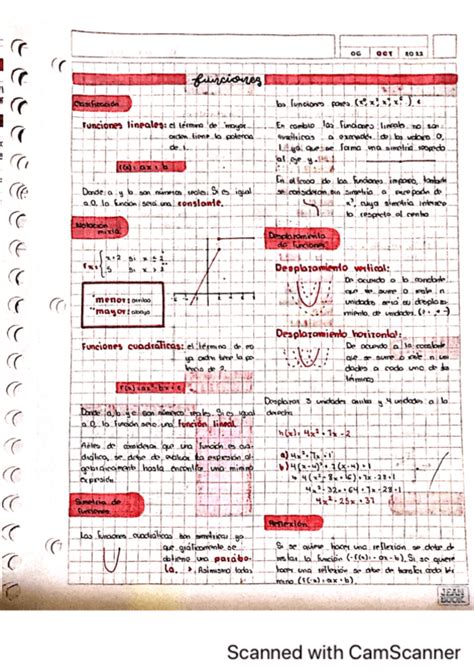 06 OCT 2022
funciones
Clasificación
Funciones lineales: el término de mayor
orden tiene la potencia
de 1.
f(x)= ax + b
Donde a y b son números reales. Si es igual
a 0, la función será una constante.
Notación
mixta
"menor": arriba
"mayor": abajo
Funciones cuadráticas: el término de
orden tiene la
de 2.
f(x)= ax² + bx + c
Donde a, b y c son números reales. Si es igual
a 0, la función será una función lineal.
Antes de considerar que una función es
se debe de la expresión
hasta encontrar una mínima
expresión.
Simetría de
funciones
Las funciones cuadráticas son simétricas ya
que gráficamente se
obtiene una parábo-
la. Asimismo todas
las funciones pares
En cambio las funciones lineales no son
simétricas a excepción de
ya que se forma una simetría respecto
al eje y.
En el caso de las funciones impares, también
se consideran sin simetría a excepción de
x³, cuya simetría
respecto al centro
Desplazamiento
de funciones
Desplazamiento vertical:
De acuerdo a la constante
que se sume o reste n
unidades será su despla
miento de unidades.
Desplazamiento horizontal:
De acuerdo a la constante
que se sume o reste n uni
dades a cada uno de los
términos
Desplazar 3 unidades arriba y 4 unidades a la
derecha
h(x): 4x² + 7x - 2
a) 4x² + 7x + 1
b) 4(x-4)² + 7(x-4) + 1
4(x² - 8x + 16) + 7x - 28 + 1
4x² - 32x + 64 + 7x - 28 + 1
4x² - 25x + 37
Reflexión
Si se quiere hacer una reflexión se debe de
la función
hacer una reflexión se debe de
JEAN
BOOK
Scanned with CamScanner